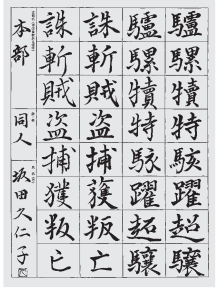 驢騾犢特駭躍超驤
驢騾犢特駭躍超驤
誅斬賊盗捕獲叛亡
誅斬賊盗捕獲叛亡
本部 同人 坂田久仁子